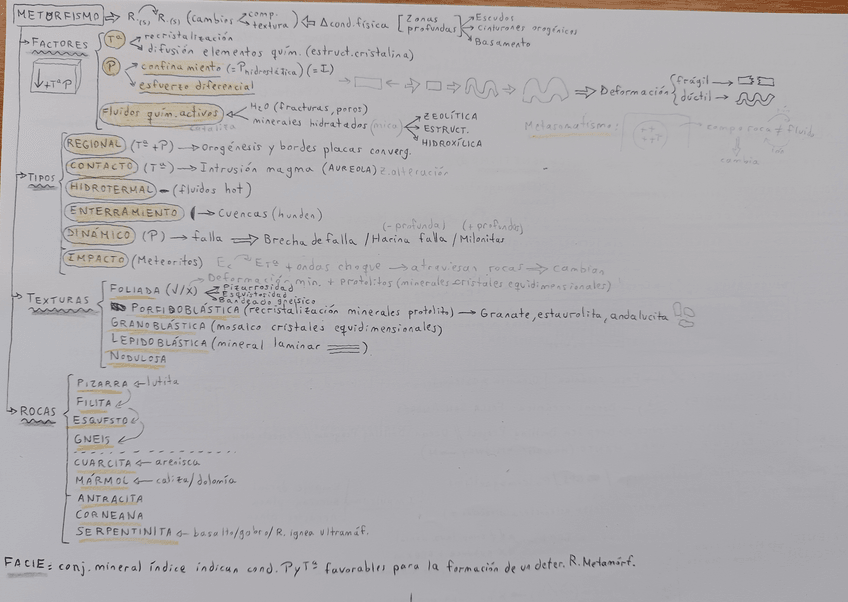 METORFISMO → R.(s) R.(s) (cambios comp. textura) ⇐ Δcond. física [Zonas profundas → Escudos
→ Cinturones orogénicos
→ Basamento
FACTORES
Tª → recristalización
→ difusión elementos quím. (estruct. cristalina)
↓+Tª P
P → confinamiento (= Phidrostática) (= I)
→ esfuerzo diferencial
⇒ Deformación frágil →
dúctil →
Fluidos quím. activos H2O (fracturas, poros)
minerales hidratados → ZEOLÍTICA
→ ESTRUCT.
→ HIDROXÍLICA
Metasomatismo:
fluido
cambia
TIPOS
REGIONAL (Tª + P) → Orogénesis y bordes placas converg.
CONTACTO (Tª) → Intrusión magma (AUREOLA) Z. alteración
HIDROTERMAL – (fluidos hot)
ENTERRAMIENTO → Cuencas (hunden)
(- profunda) (+ profundas)
DINÁMICO (P) → falla ⇒ Brecha de falla / Harina falla / Milonitas
IMPACTO (Meteoritos) Ec ETª + ondas choque → atraviesan rocas ⇒ cambian
Deformación min. + protolitos (minerales cristales equidimensionales)
TEXTURAS
FOLIADA (√/x) → Pizarrosidad
→ Esquistosidad
→ Bandeado gnéisico
PORFIDOBLÁSTICA (recristalización minerales protolito) → Granate, estaurolita, andalucita
GRANOBLÁSTICA (mosaico cristales equidimensionales)
LEPIDOBLÁSTICA (mineral laminar)
NODULOSA
ROCAS
PIZARRA ← lutita
FILITA
ESQUISTO
GNEIS
CUARCITA ← arenisca
MÁRMOL ← caliza/dolomía
ANTRACITA
CORNEANA
SERPENTINITA ← basalto/gabro/R. ígnea ultramáf.
FACIE = conj. mineral índice indican cond. P y Tª favorables para la formación de un deter. R. Metamórf.